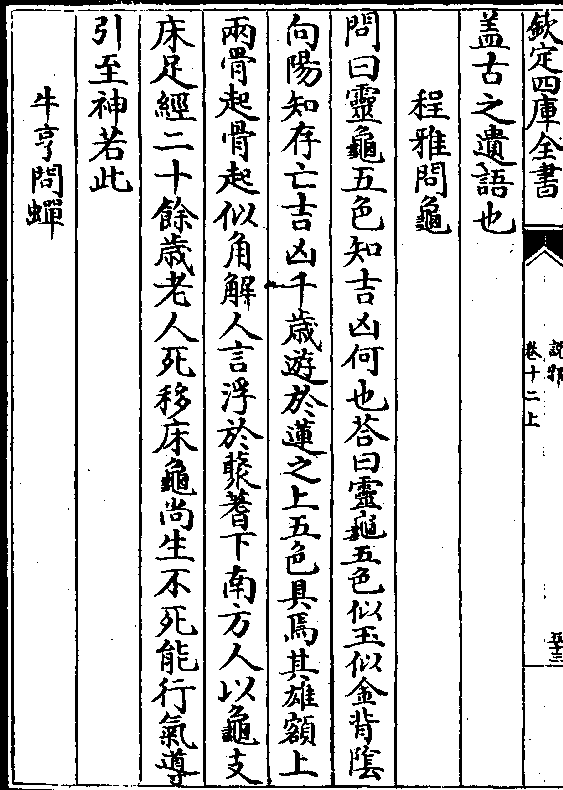 欽定四庫全書
說郛
卷十二上
五十三
盖古之遺語也
程雅問龜
問曰靈龜五色知吉凶何也荅曰靈龜五色似玉似金背陰
向陽知存亡吉凶千歳遊於蓮之上五色具焉其雄額上
兩骨起骨起似角解人言浮於藂蓍下南方人以龜支
床足經二十餘歳老人死移床龜尚生不死能行氣導
引至神若此
牛亨問蟬